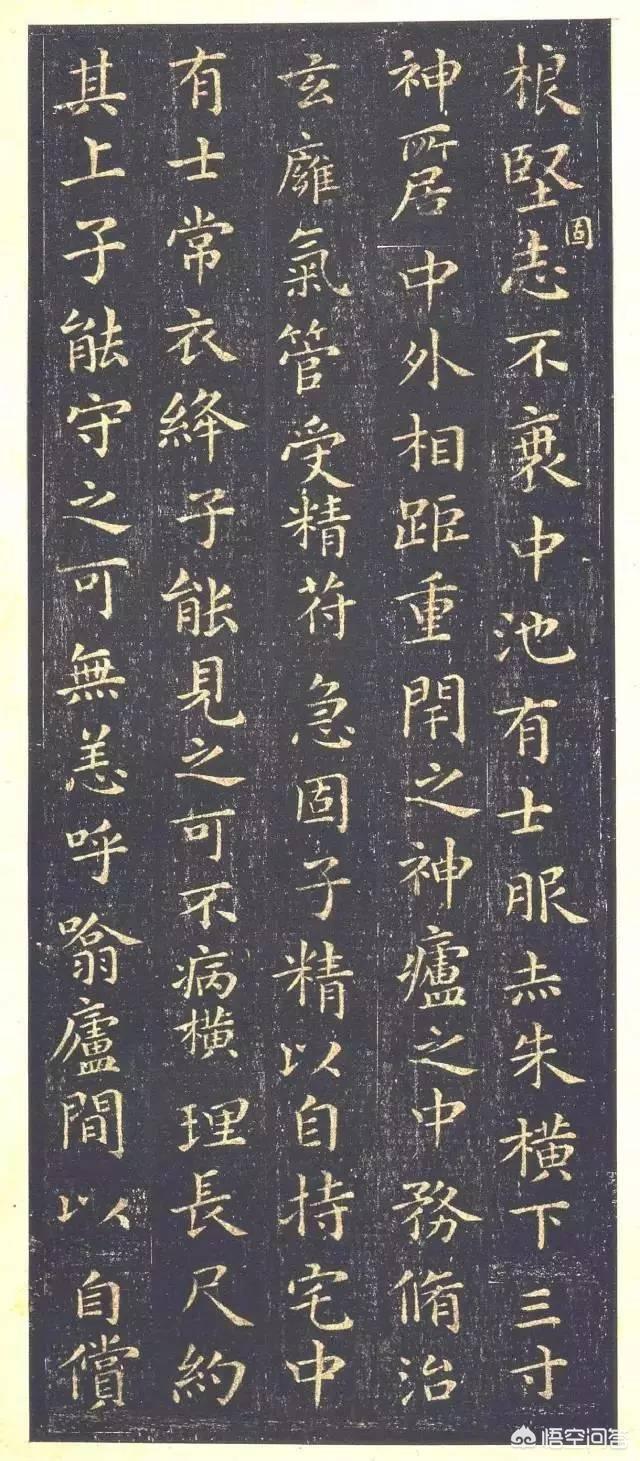 根堅固志不衰中池有士服赤朱横下三寸
神所居中外相距重閇之神廬之中務脩治
玄膺氣管受精符急固子精以自持宅中
有士常衣絳子能見之可不病横理長尺約
其上子能守之可無恙呼噏廬間以自償
悟空问答